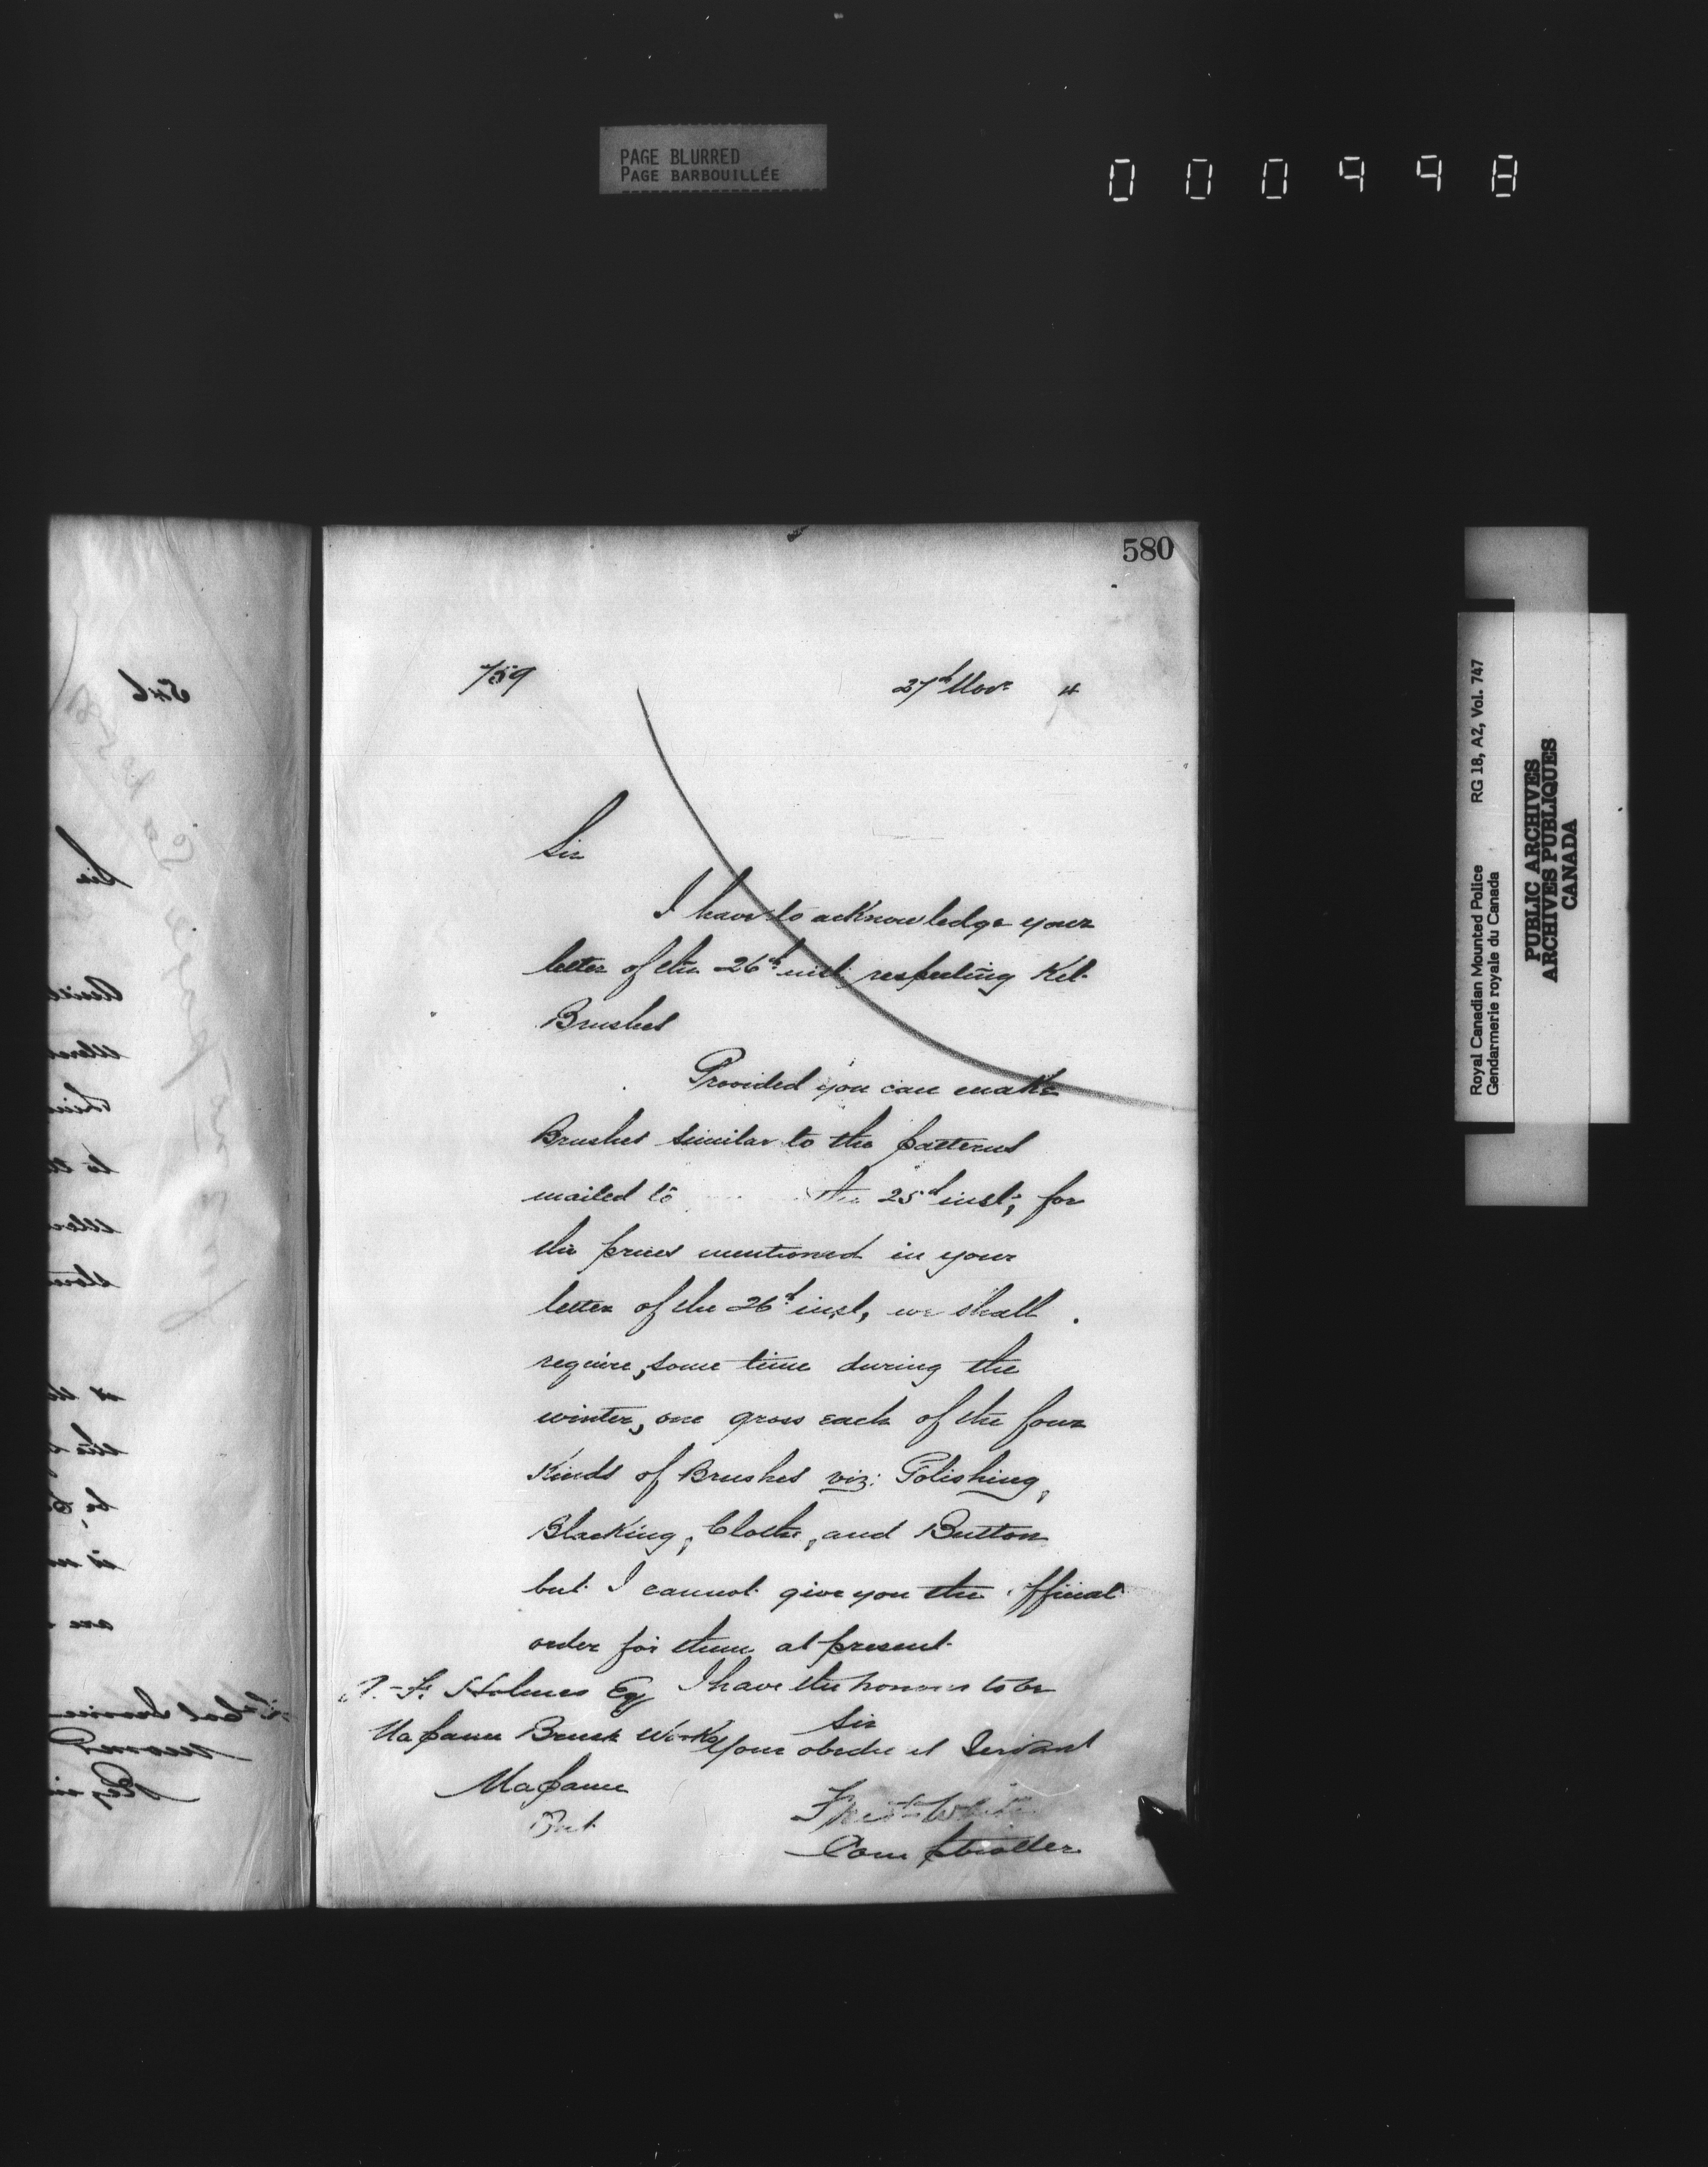 PAGE BLURRED
PAGE BARBOUILLÉE
000998
580
759
27th Novr 4
Sir
I have to acknowledge your
letter of the 26th inst; respecting Kit
Brushes
Provided you can make
Brushes similar to the patterns
mailed to the 25th inst; for
the prices mentioned in your
letter of the 26th inst, we shall
require, some time during the
winter, one gross each of the four
Kinds of Brushes viz: Polishing,
Blacking, Cloth, and Button
but I cannot give you the official
order for them at present
I have the honour to be
Sir
Your obedient Servant
Fred White
Comptroller
Holmes Esq
Napanee Brush Works
Napanee
Ont
546
Sir
Regi
Royal Canadian Mounted Police RG 18, A2, Vol. 747
Gendarmerie royale du Canada
PUBLIC ARCHIVES
ARCHIVES PUBLIQUES
CANADA